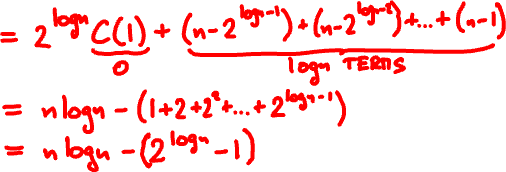 = 2^{log n} C(1) + (n-2^{log n-1}) + (n-2^{log n-2}) + ... + (n-1)
0 log n TERMS
= n log n - (1+2+2²+...+2^{log n-1})
= n log n - (2^{log n} - 1)